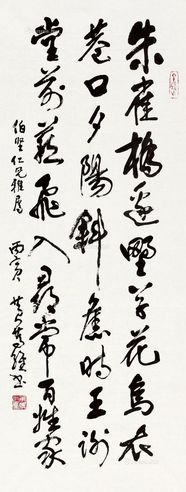 朱雀橋邊野草花烏衣
巷口夕陽斜舊時王謝
堂前燕飛入尋常百姓家
伯堅仁兄雅屬 丙寅